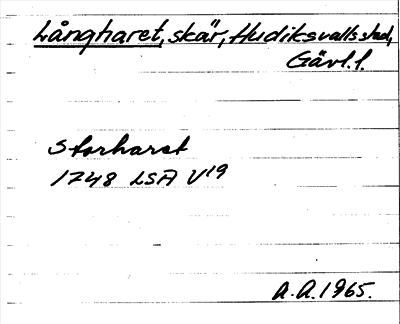 Långharet, skär, Hudiksvalls stad,
Gävl. l.
Storharet
1748 LSA V19
A.A. 1965.